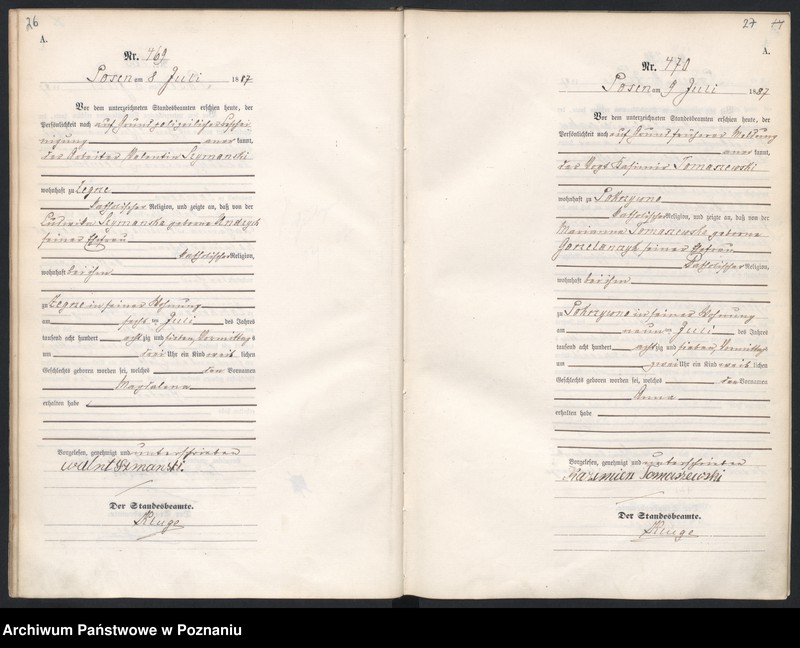 26
A.
Nr. 469
Posen am 8 Juli 1887
Vor dem unterzeichneten Standesbeamten erschien heute, der
Persönlichkeit nach auf Grund polizeilicher Beschei-
nigung anerkannt,
der Arbeiter Valentin Szymanski
wohnhaft zu Zegrze
katholischer Religion, und zeigte an, daß von der
Ludwika Szymanska geborne Andrzych
seiner Ehefrau
katholischer Religion,
wohnhaft bei ihm
zu Zegrze in seiner Wohnung
am sechsten Juli des Jahres
tausend acht hundert achtzig und sieben Vormittags
um drei Uhr ein Kind weiblichen
Geschlechts geboren worden sei, welches den Vornamen
Magdalena
erhalten habe
Vorgelesen, genehmigt und unterschrieben
Walnt Szimanski.
Der Standesbeamte.
Kluge
27
A.
Nr. 470
Posen am 9 Juli 1887
Vor dem unterzeichneten Standesbeamten erschien heute, der
Persönlichkeit nach auf Grund früherer Meldung
anerkannt,
der Vogt Kasimir Tomaszewski
wohnhaft zu Pokrzywno
katholischer Religion, und zeigte an, daß von der
Marianna Tomaszewska geborne
seiner Ehefrau
katholischer Religion,
wohnhaft bei ihm
zu Pokrzywno in seiner Wohnung
am neunten Juli des Jahres
tausend acht hundert achtzig und sieben Vormittags
um zwei Uhr ein Kind weiblichen
Geschlechts geboren worden sei, welches den Vornamen
Anna
erhalten habe
Vorgelesen, genehmigt und unterschrieben
Kazimierz Tomaszewski
Der Standesbeamte.
Kluge
Archiwum Państwowe w Poznaniu